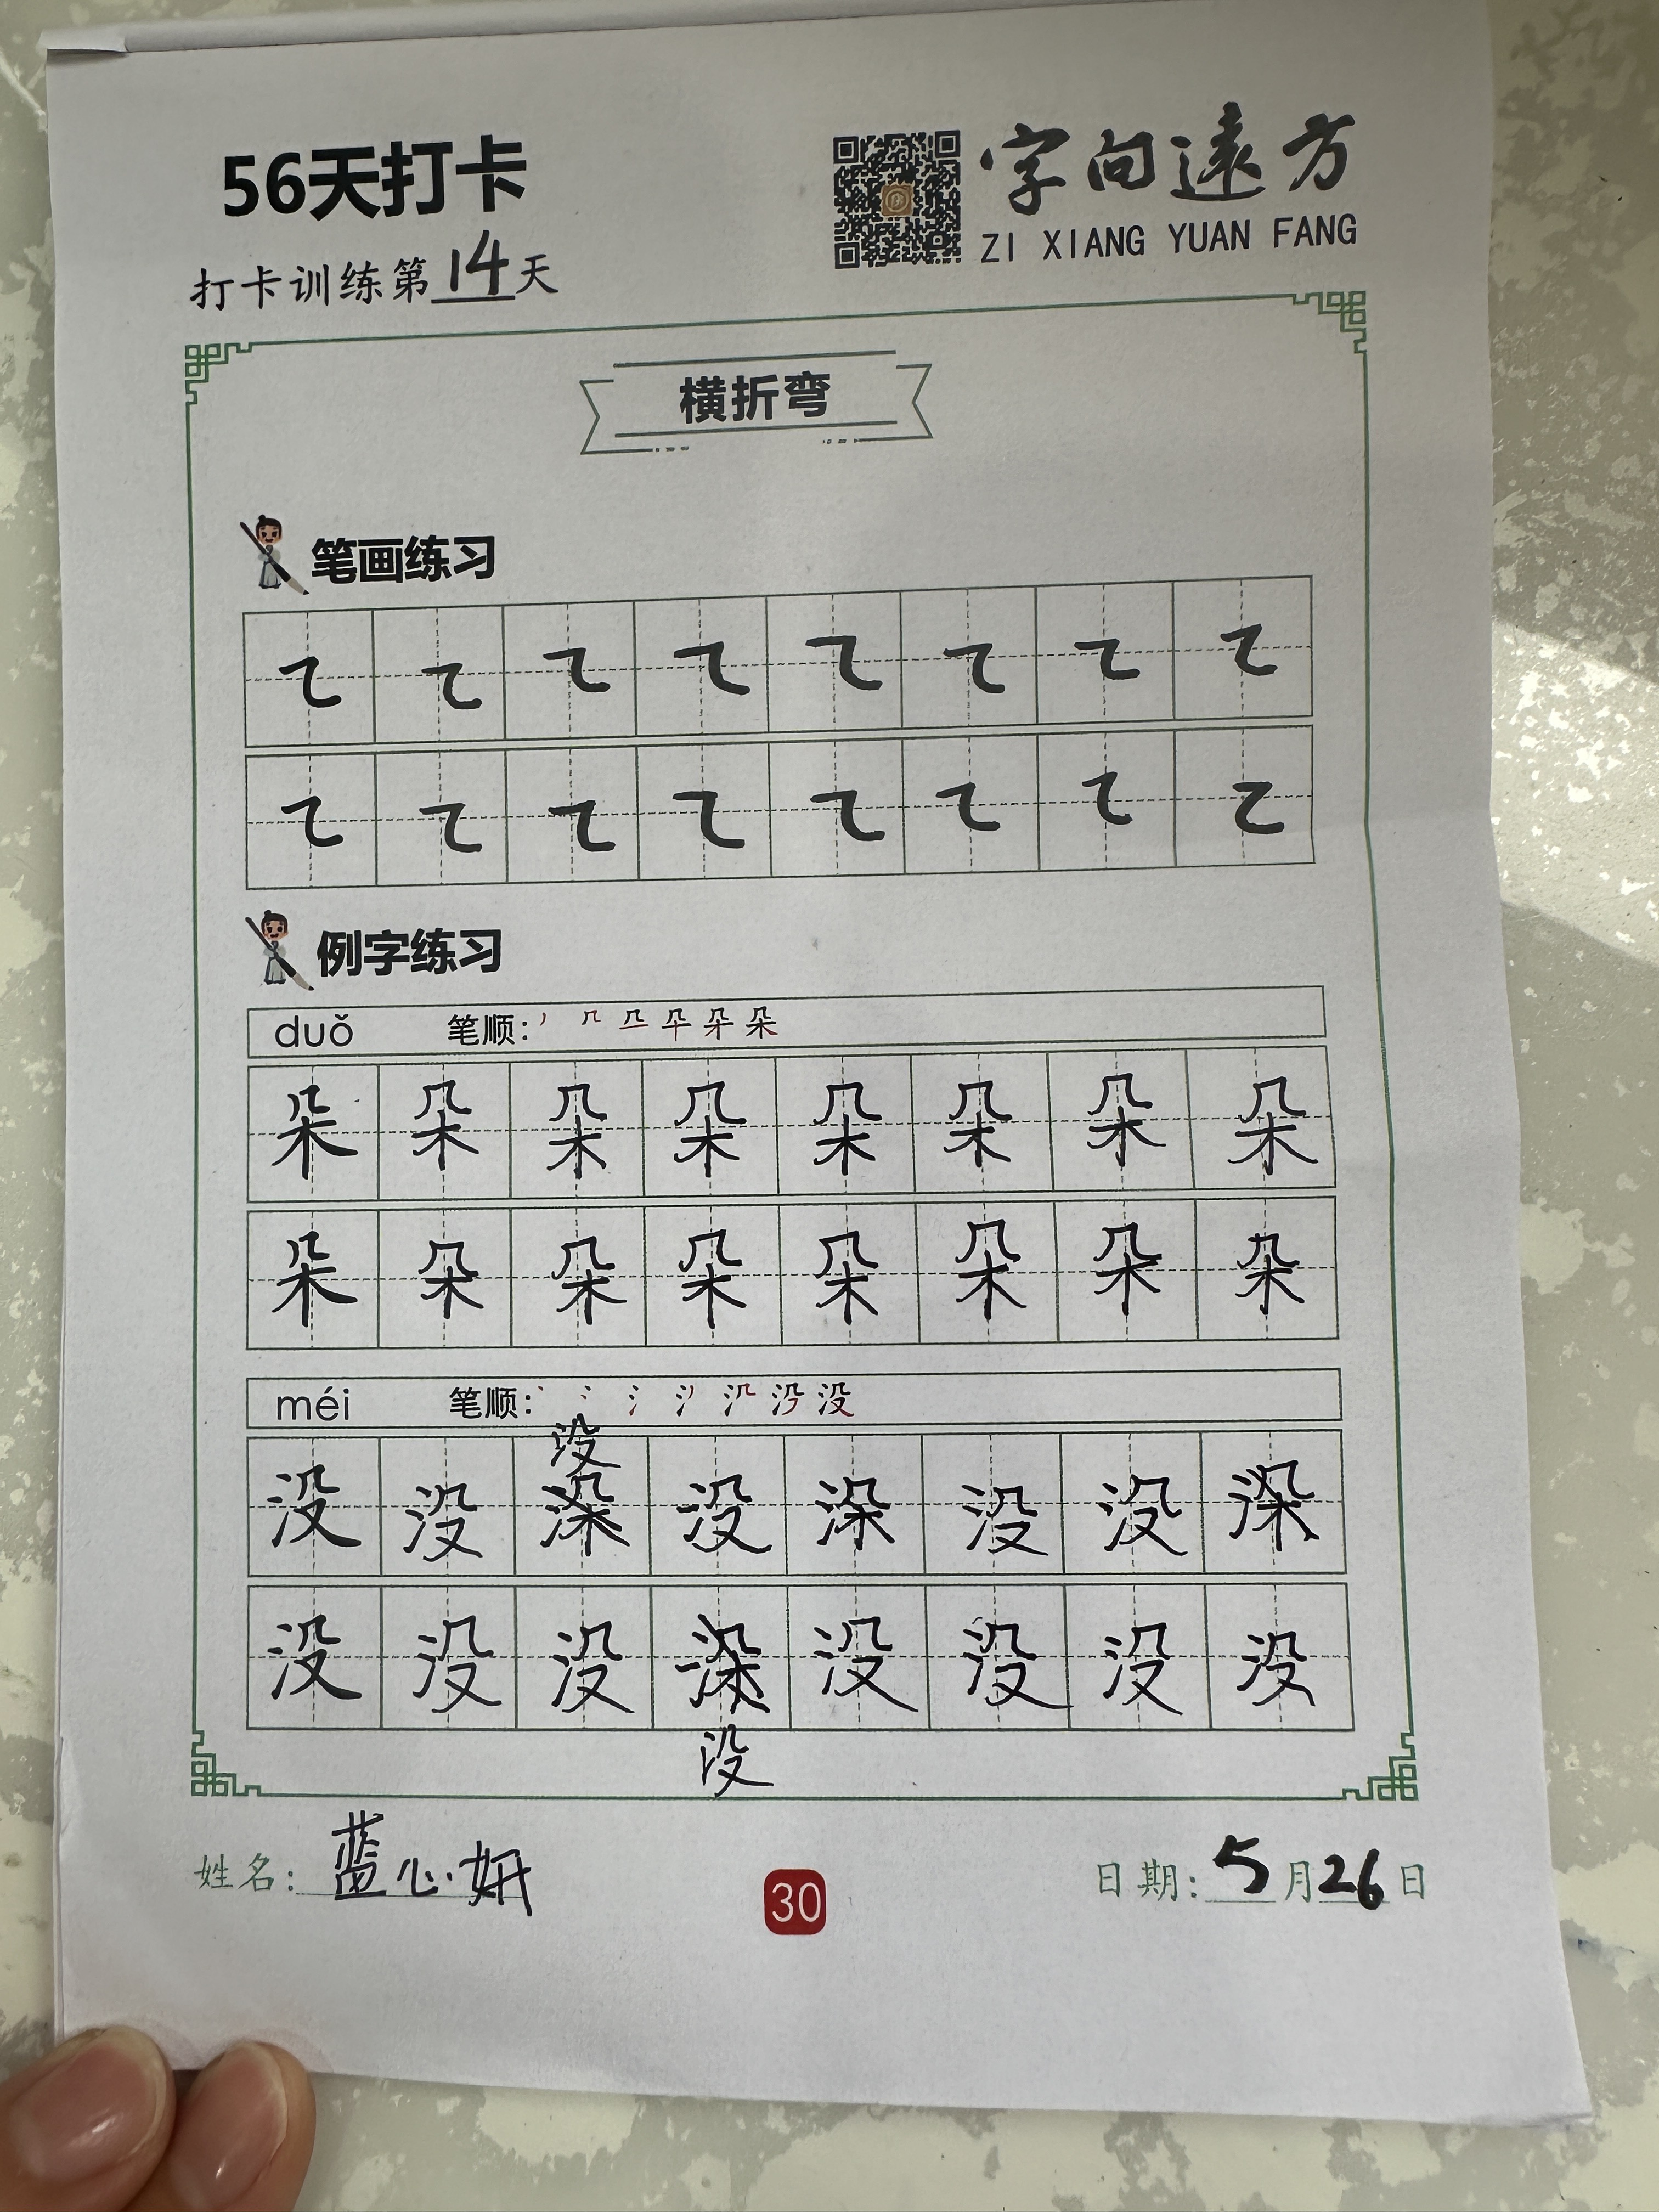 56天打卡
字向遠方
ZI XIANG YUAN FANG
打卡训练第14天
横折弯
笔画练习
例字练习
duǒ 笔顺:
朵 朵 朵 朵 朵 朵 朵 朵
朵 朵 朵 朵 朵 朵 朵 朵
méi 笔顺: 没
没
没 没 没 没 没 没
没 没 没 没 没 没 没
没
姓名: 蓝心妍
30
日期: 5月26日